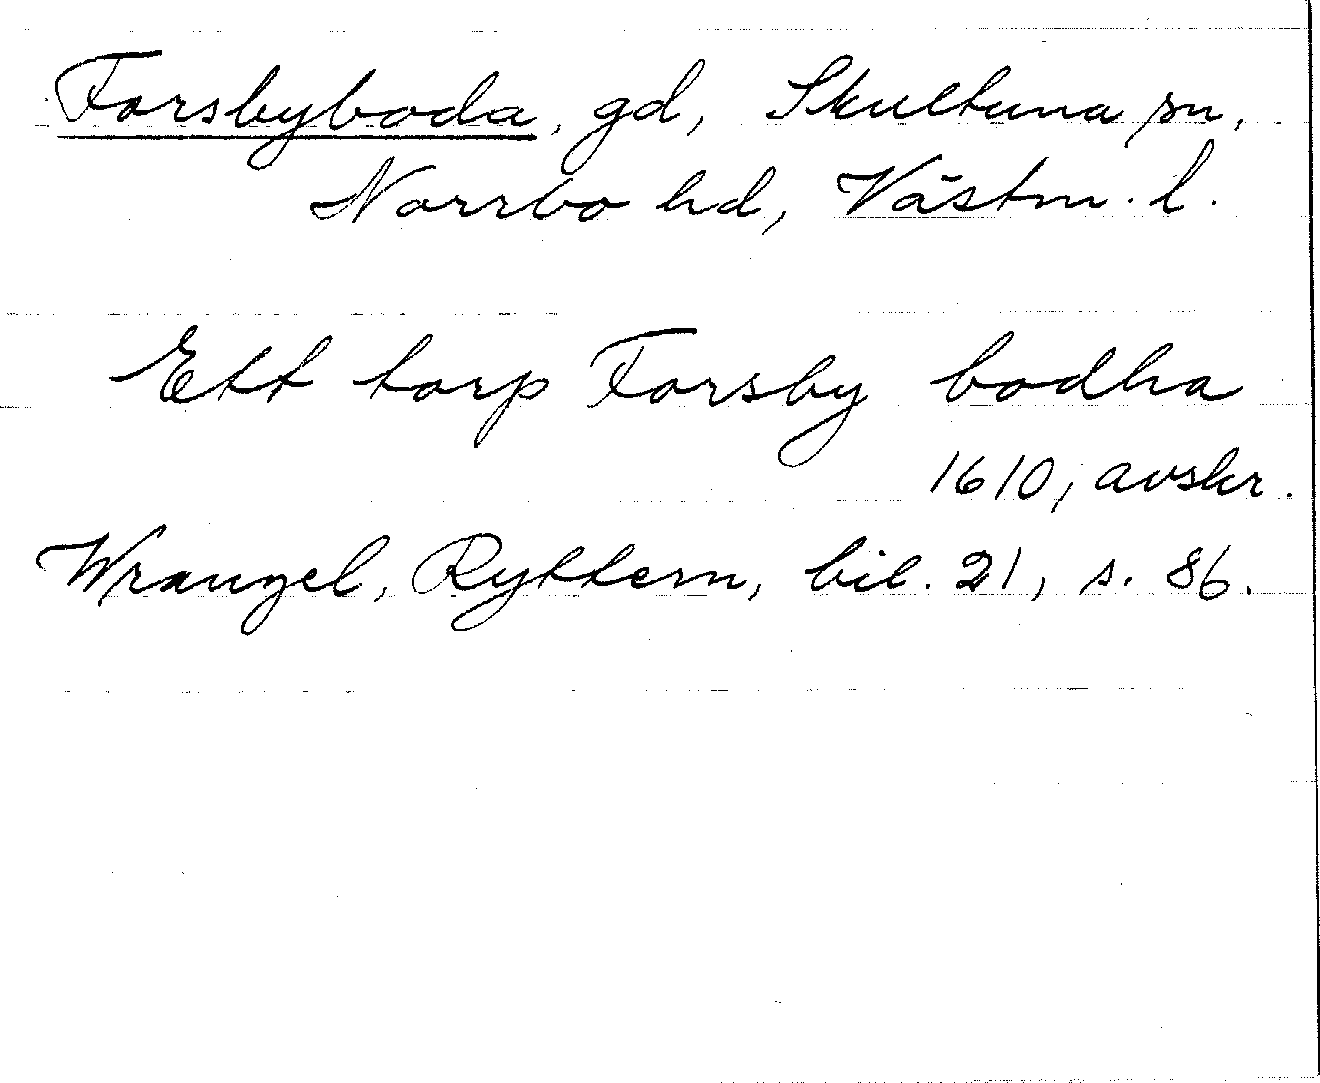 Forsbyboda, gd, Skultuna sn,
Norrbo hd, Västm. l.
Ett torp Forsby bodha
1610, avskr.
Wrangel, Ryttern, bil. 21, s. 86.